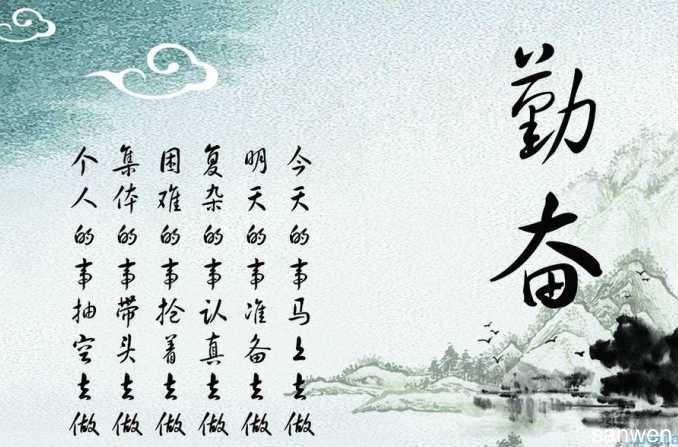 勤奋
今天的事马上去做
明天的事准备去做
复杂的事认真去做
困难的事抢着去做
集体的事带头去做
个人的事抽空去做
sanwen